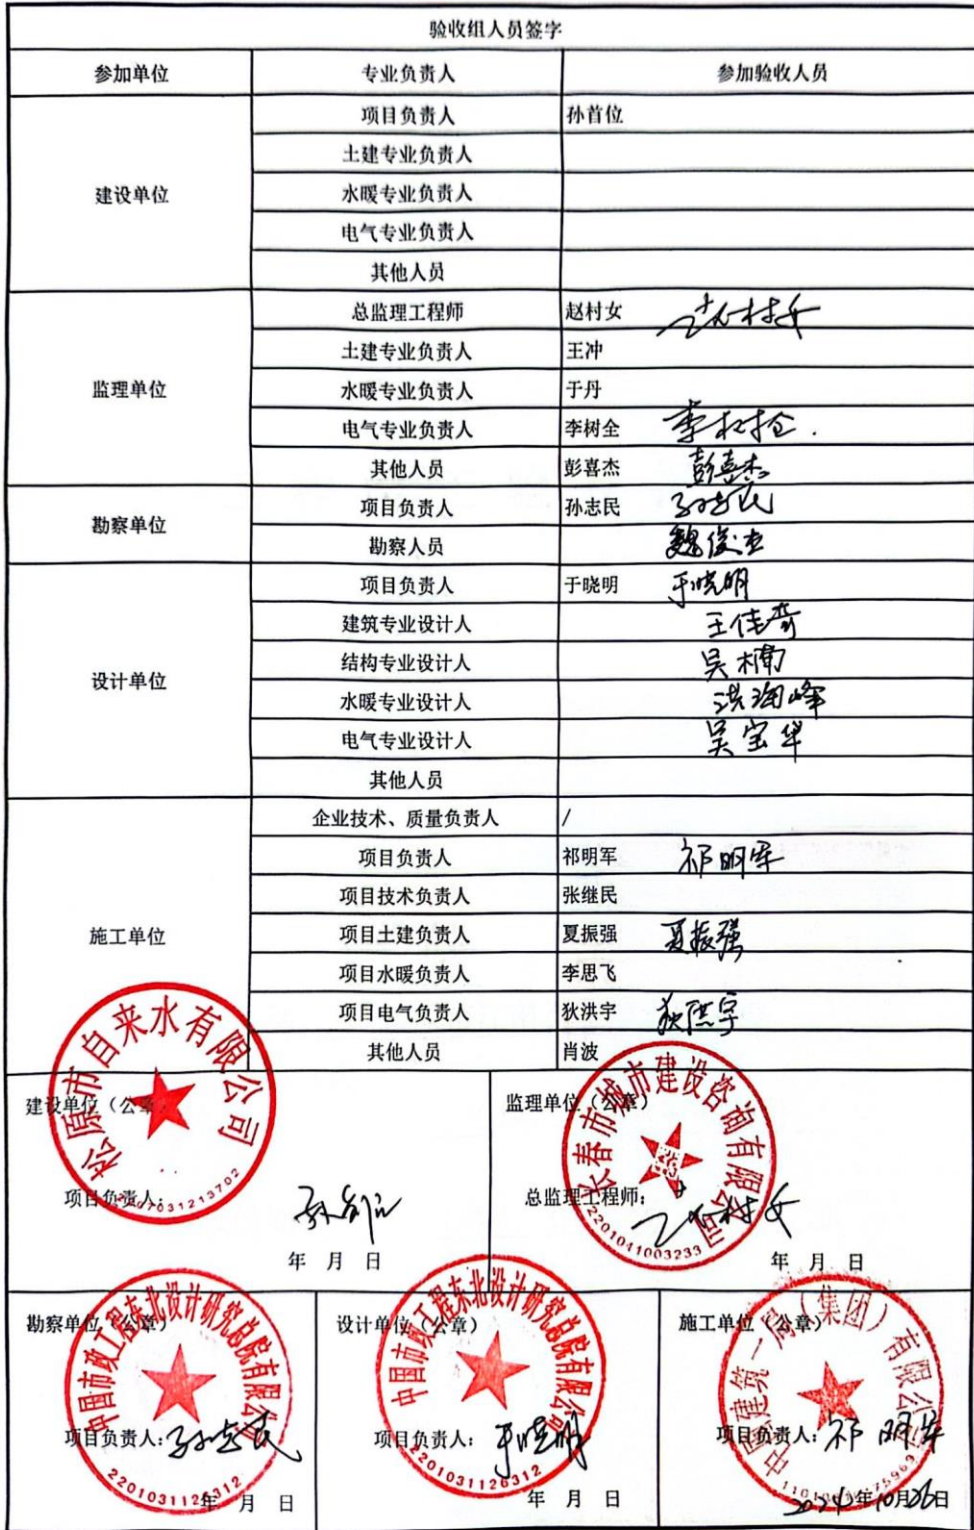 验收组人员签字
参加单位 专业负责人 参加验收人员
建设单位
项目负责人 孙首位
土建专业负责人
水暖专业负责人
电气专业负责人
其他人员
监理单位
总监理工程师 赵村女 赵村女
土建专业负责人 王冲
水暖专业负责人 于丹
电气专业负责人 李树全 李树全
其他人员 彭喜杰 彭喜杰
勘察单位
项目负责人 孙志民 孙志民
勘察人员 魏俊杰
设计单位
项目负责人 于晓明 于晓明
建筑专业设计人 王佳奇
结构专业设计人 吴楠
水暖专业设计人 洪海峰
电气专业设计人 吴宝华
其他人员
施工单位
企业技术、质量负责人 /
项目负责人 祁明军 祁明军
项目技术负责人 张继民
项目土建负责人 夏振强 夏振强
项目水暖负责人 李思飞
项目电气负责人 狄洪宇 狄洪宇
其他人员 肖波
建设单位（公章）
松原市自来水有限公司
项目负责人： 孙首位
年 月 日
监理单位（公章）
长春市城市建设咨询有限公司
总监理工程师： 赵村女
2201041003233
年 月 日
勘察单位（公章）
中国市政工程东北设计研究总院有限公司
项目负责人： 孙志民
2201031126312
年 月 日
设计单位（公章）
中国市政工程东北设计研究总院有限公司
项目负责人： 于晓明
2201031126312
年 月 日
施工单位（公章）
中国建筑一局（集团）有限公司
项目负责人： 祁明军
2024年10月26日